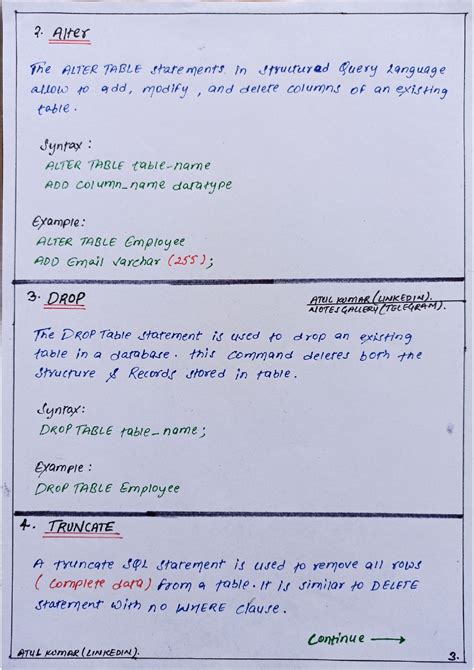 2. Alter
The ALTER TABLE statements in structured Query Language
allow to add, modify, and delete columns of an existing
table.
Syntax:
ALTER TABLE table-name
ADD Column_name datatype
Example:
ALTER TABLE Employee
ADD Email varchar (255);
3. DROP
ATUL KUMAR (LINKEDIN).
NOTES GALLERY (TELEGRAM).
The DROP Table statement is used to drop an existing
table in a database. this command deletes both the
structure & Records stored in table.
Syntax:
DROP TABLE table_name;
Example:
DROP TABLE Employee
4. TRUNCATE
A truncate SQL statement is used to remove all rows
(complete data) from a table. It is similar to DELETE
statement with no WHERE clause.
Continue →
ATUL KUMAR (LINKEDIN).
3.